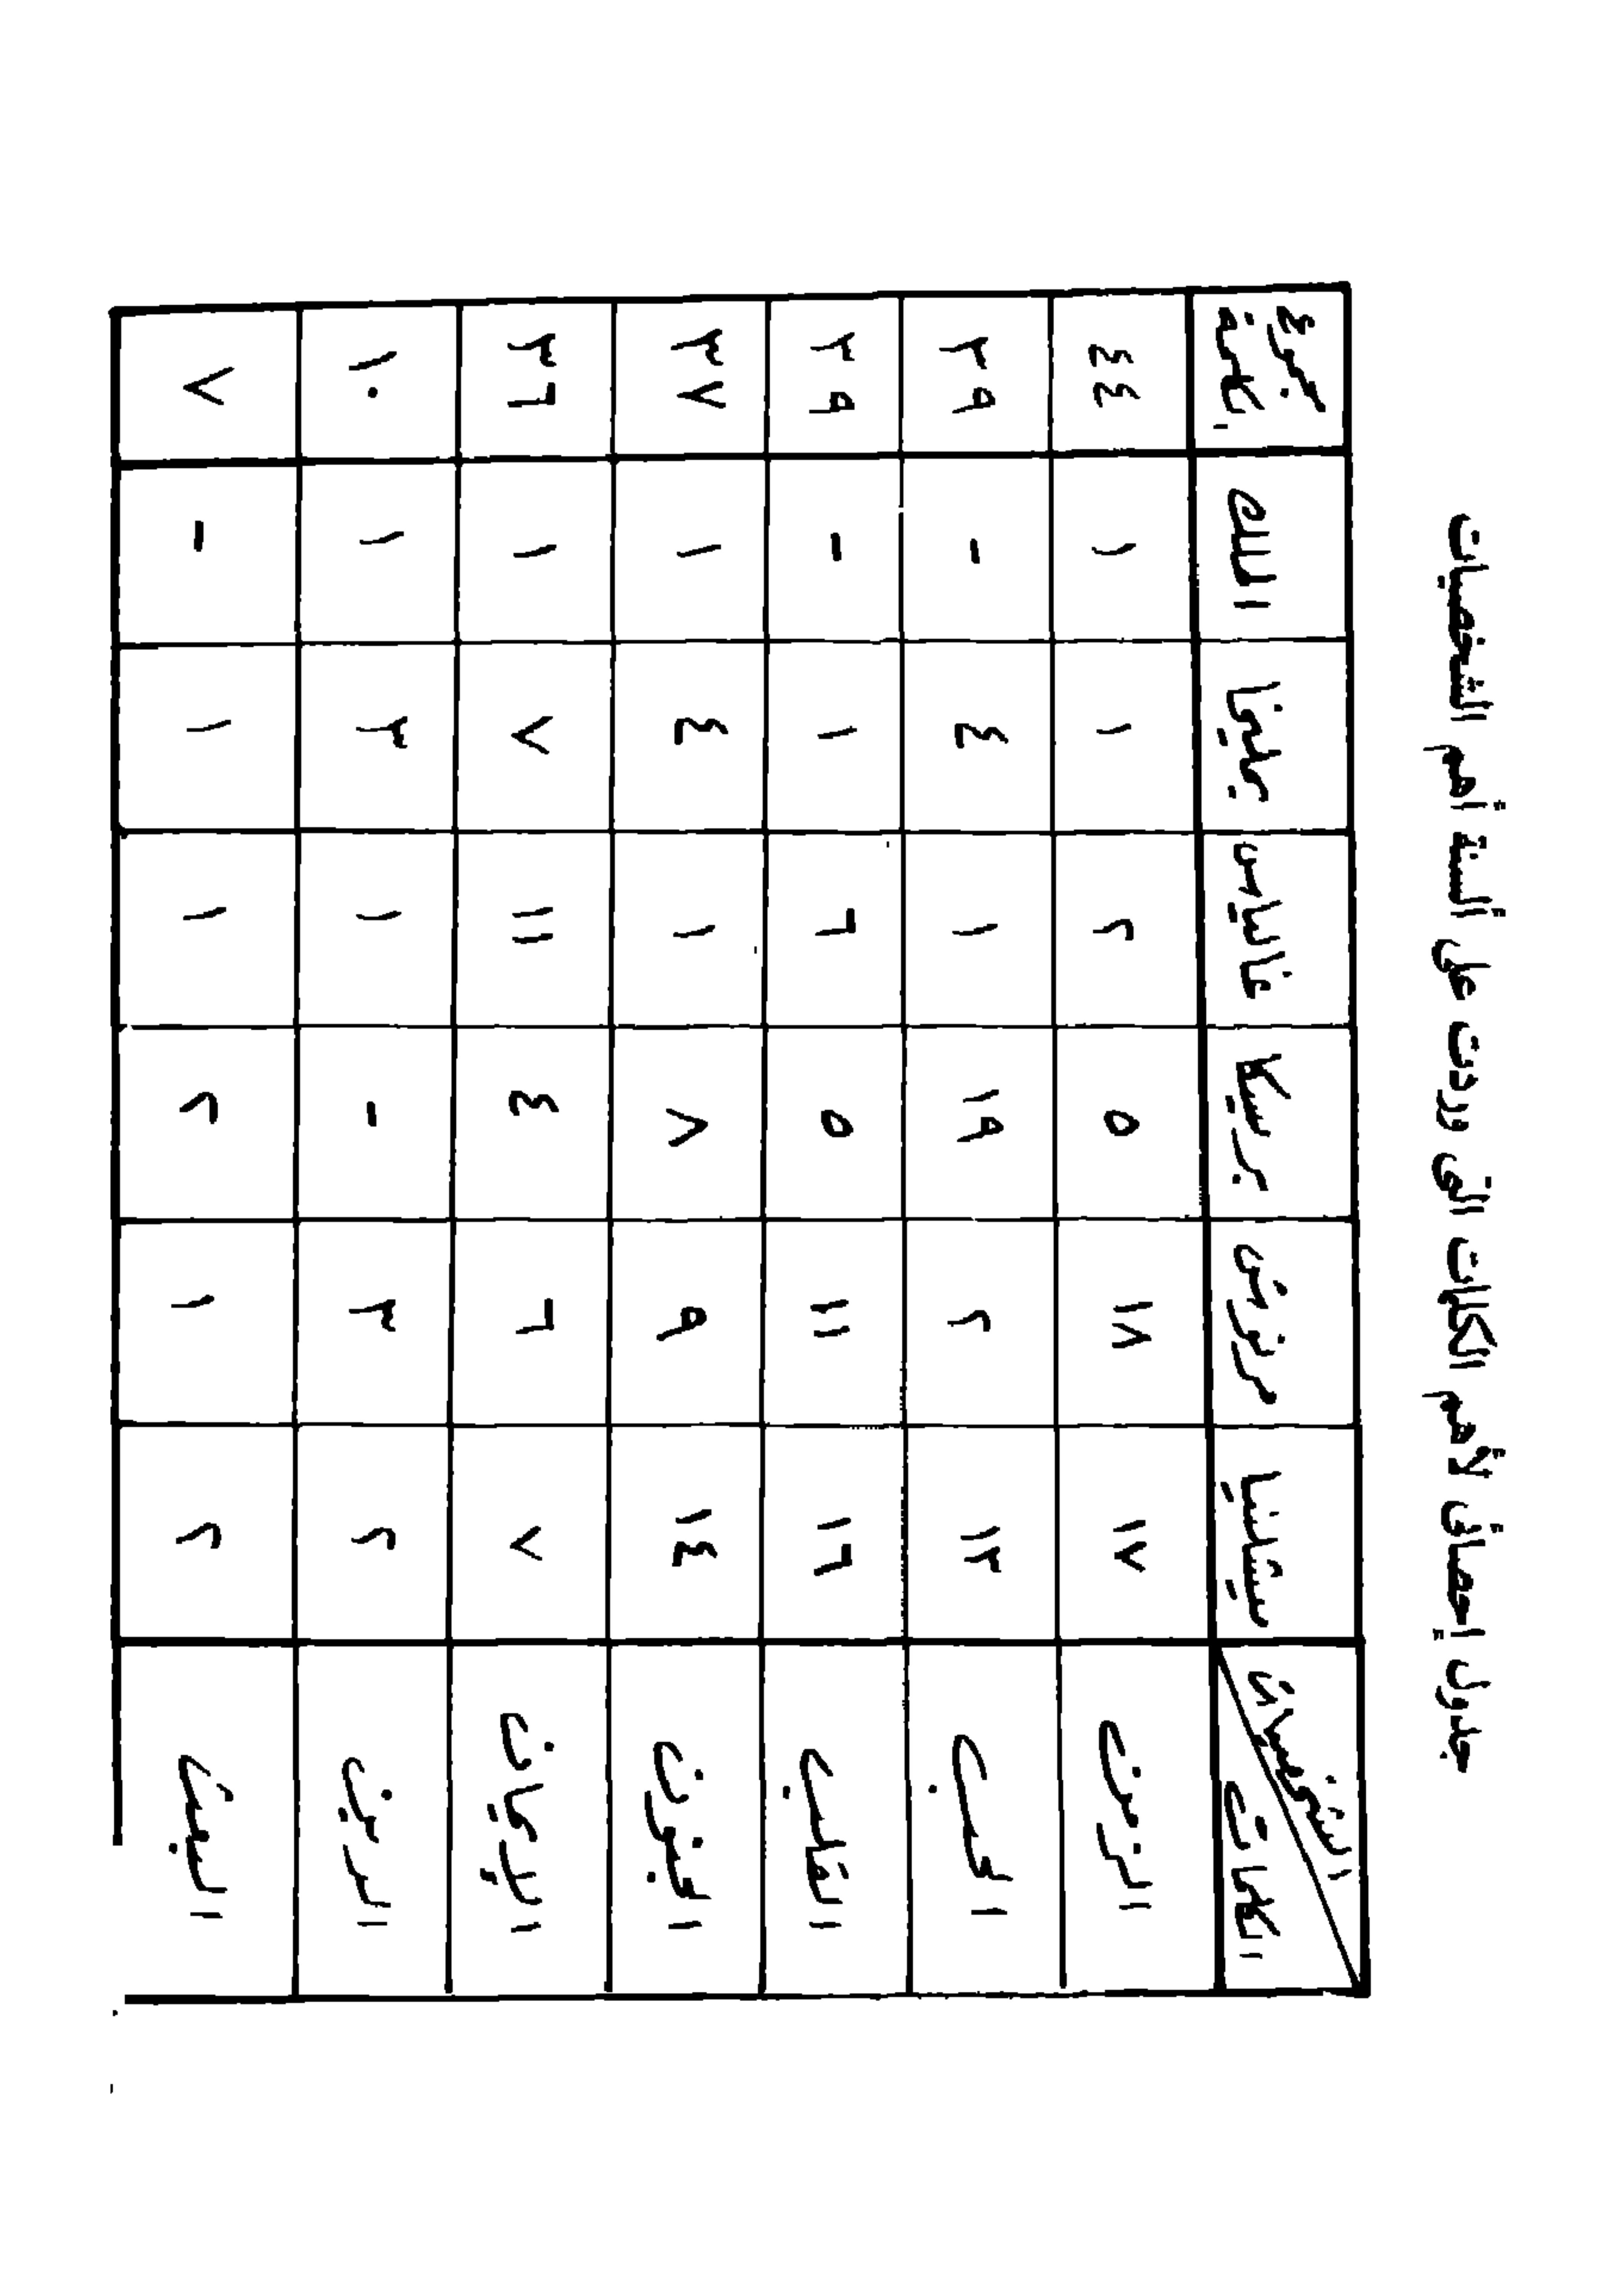 جدول إحصائى لأهم الكلمات التى وردت على ألسنة أهم الشخصيات
الشخصيات الكلمات مشيلينيا مرنوش بريسكا غالياس يمليخا الملك مجموع كلمة
الزمن ١٧ ١٨ ٥ ٢ ١ ١ ٤٤
الحب ١٣ ٢ ١٩ ١ ٤ - ٣٩
القلب ١٦ ١١ ٥ ٦ ١ - ٣٩
الجنون ١٤ ٩ ٨ ١ ٤ ١ ٣٧
الإيمان ٧ ٦ ٤ ١١ ٧ ١ ٣٦
الدين ٢ ٣ - ١ ٣ ١ ١٠
البعث ٢ ١ ٢ ١ ١ - ٧